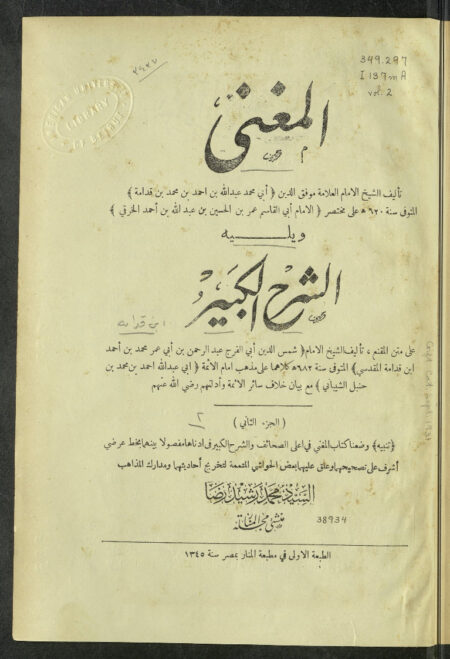 ٢٤٢٧
349.297
I139mA
vol. 2
AMERICAN UNIVERSITY
LIBRARY
OF BEIRUT
المغني
تأليف الشيخ الامام العلامة موفق الدين ﴿ أبي محمد عبدالله بن احمد بن محمد بن قدامة ﴾
المتوفى سنة ٦٢٠ ه على مختصر ﴿ الامام أبي القاسم عمر بن الحسين بن عبد الله بن أحمد الخرقي ﴾
ويليه
الشرح الكبير
ابن قدامه
على متن المقنع ، تأليف الشيخ الامام ﴿ شمس الدين أبي الفرج عبد الرحمن بن أبي عمر محمد بن أحمد
ابن قدامة المقدسي ﴾ المتوفى سنة ٦٨٢ ه كلاهما على مذهب امام الائمة ﴿ ابي عبدالله احمد بن محمد بن
حنبل الشيباني ﴾ مع بيان خلاف سائر الائمة وأدلتهم رضي الله عنهم
﴿ الجزء الثاني ﴾
٢
﴿ تنبيه ﴾ وضعنا كتاب المغني في اعلى الصحائف والشرح الكبير في ادناها مفصولا بينهما بخط عرضي
أشرف على تصحيحها وعلق عليها بعض الحواشي المتممة لتخريج أحاديثها ومدارك المذاهب
السيد محمد رشيد رضا
منشئ مجلة المنار
38934
الطبعة الاولى في مطبعة المنار بمصر سنة ١٣٤٥